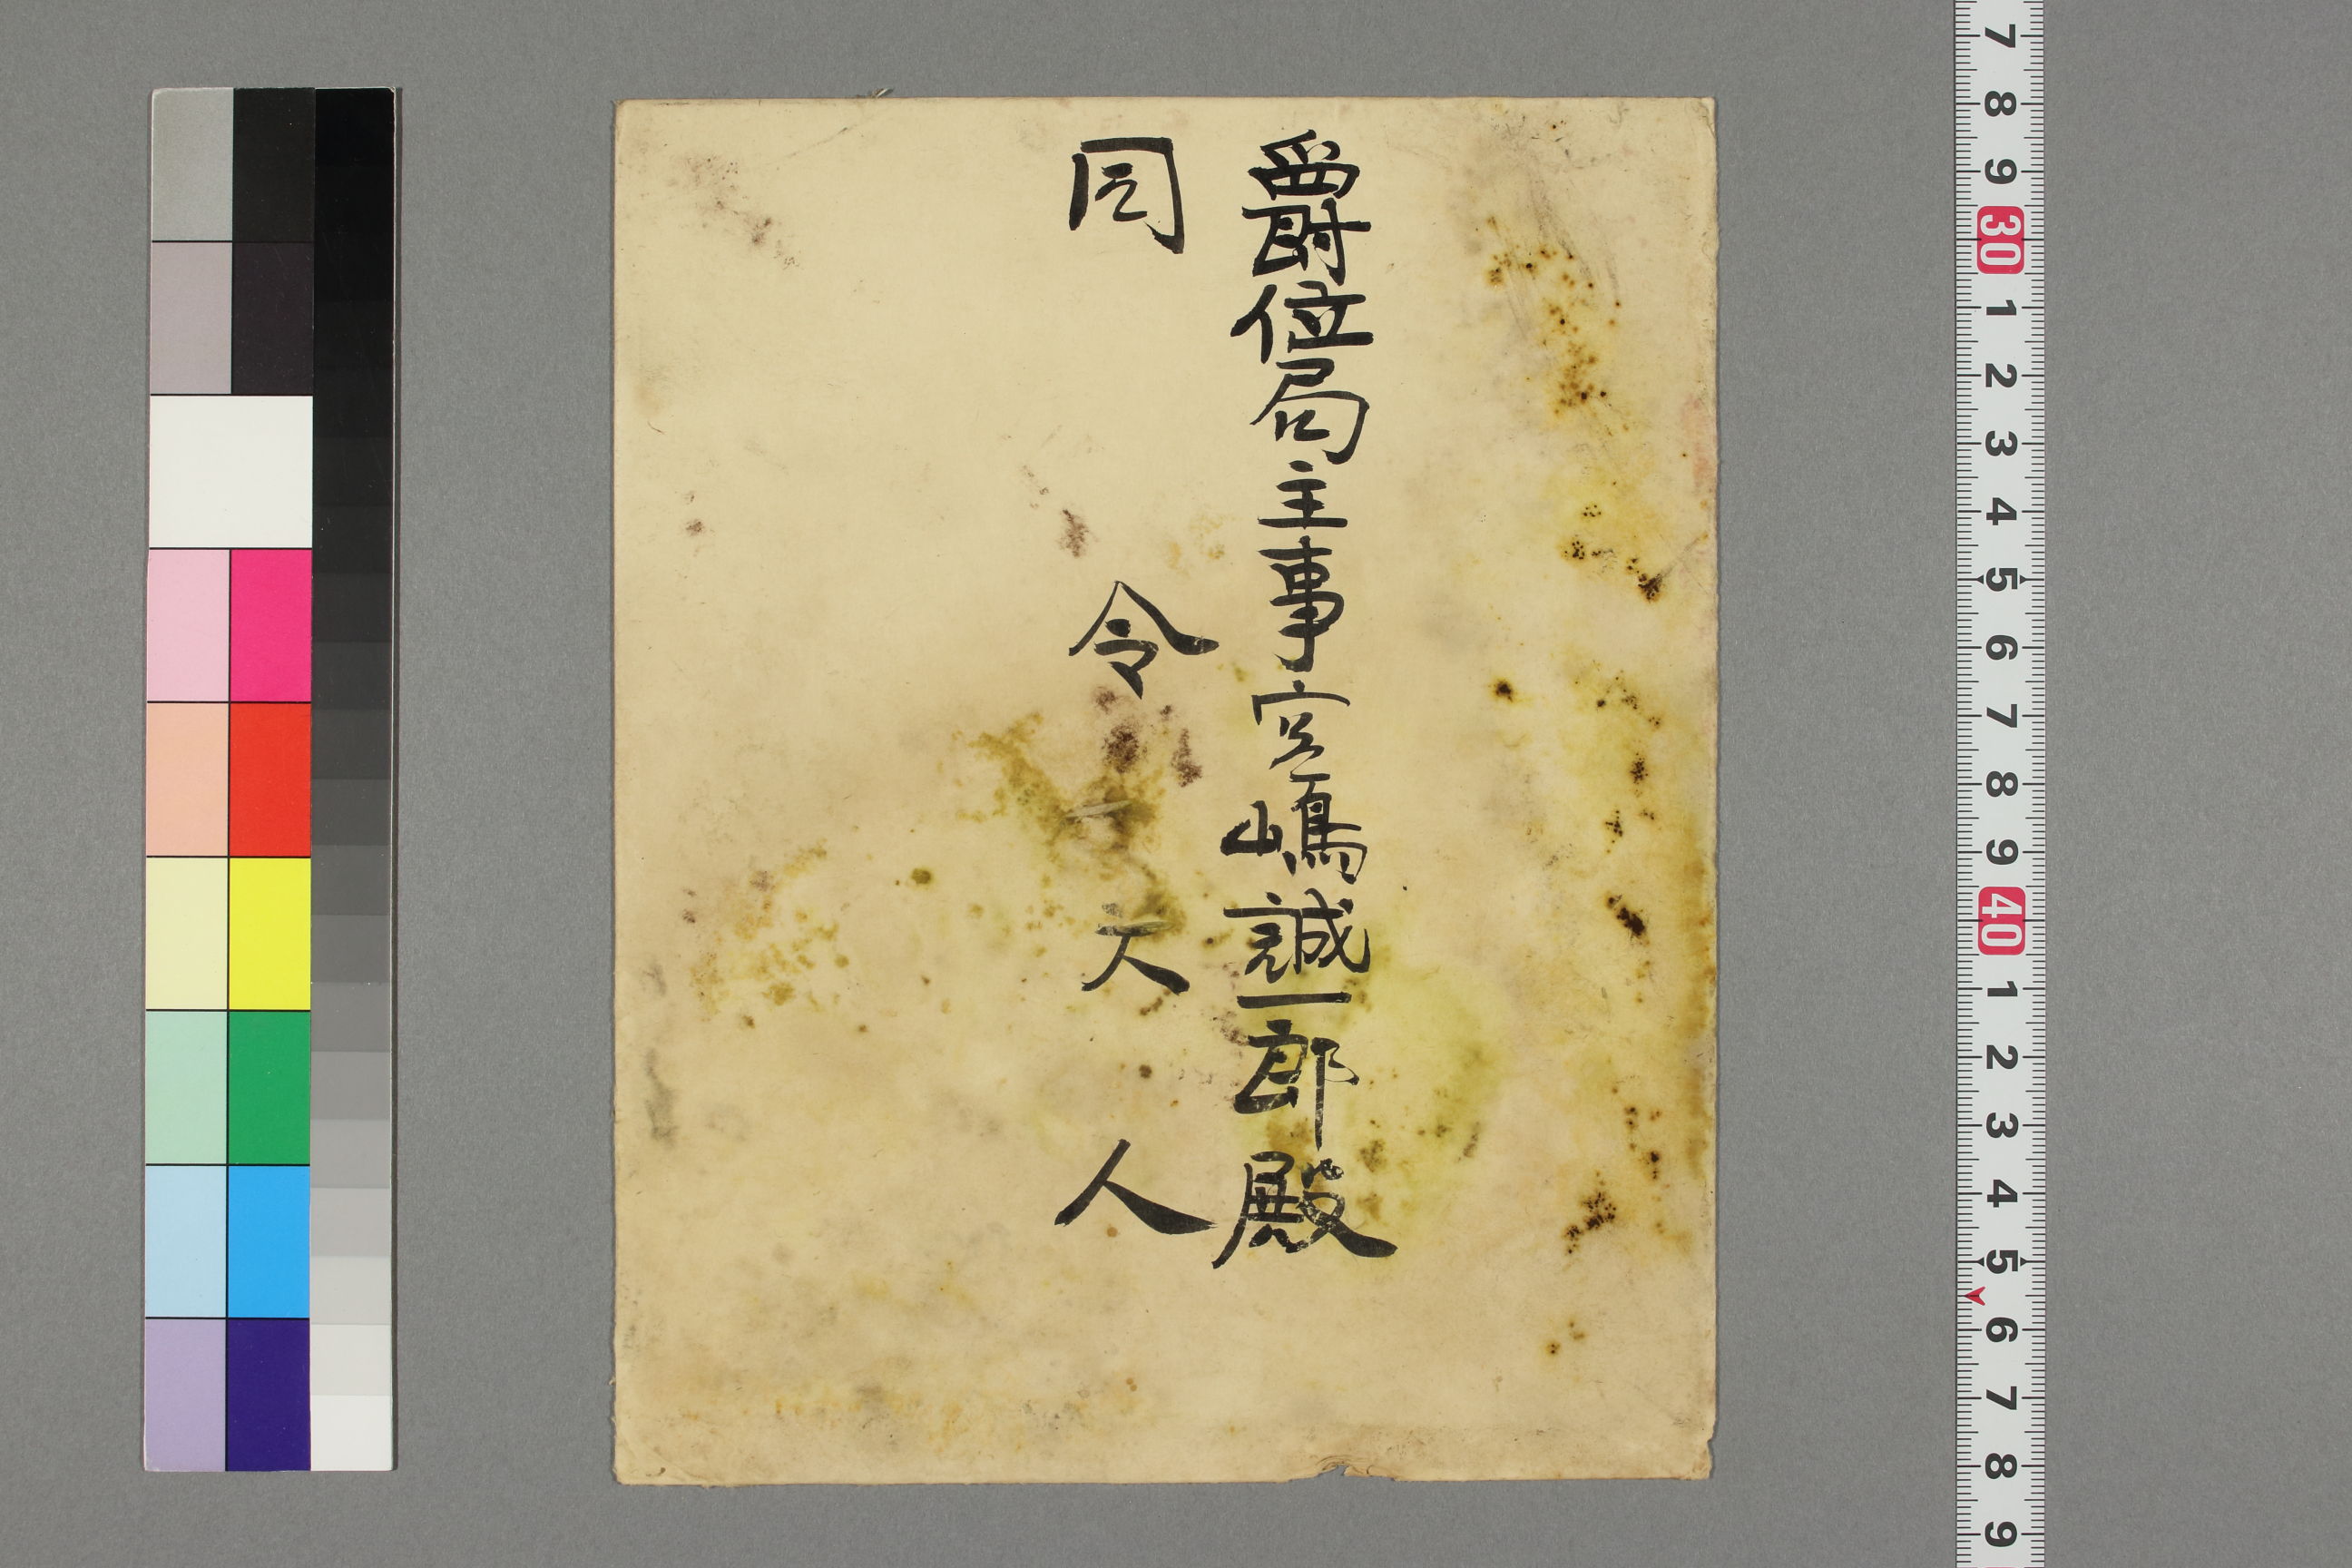 爵位局主事宮嶋誠一郎殿
同令夫人
7 8 9 30 1 2 3 4 5 6 7 8 9 40 1 2 3 4 5 6 7 8 9